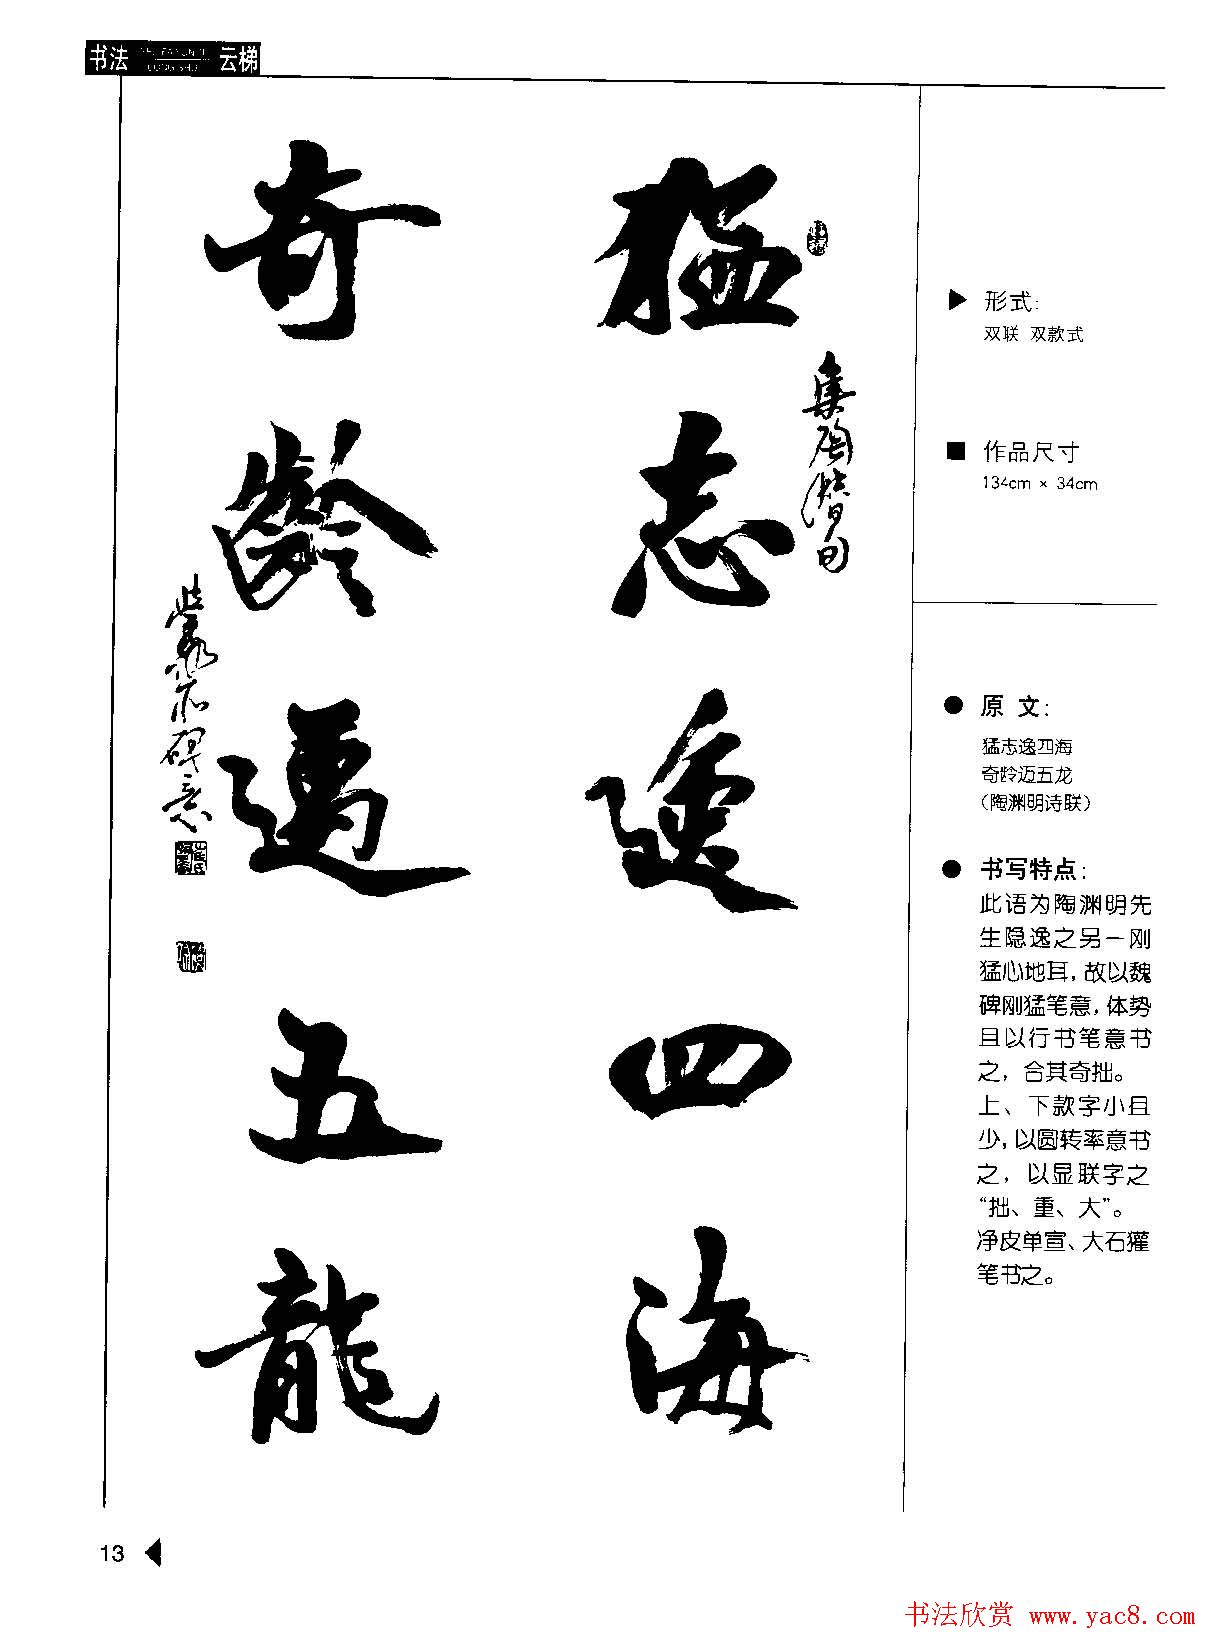 书法 云梯
猛志逸四海
集陶潜句
奇龄迈五龙
崇永不碑意
▶ 形式:
双联 双款式
■ 作品尺寸
134cm × 34cm
● 原 文:
猛志逸四海
奇龄迈五龙
(陶渊明诗联)
● 书写特点:
此语为陶渊明先
生隐逸之另一刚
猛心地耳,故以魏
碑刚猛笔意,体势
且以行书笔意书
之,合其奇拙。
上、下款字小且
少,以圆转率意书
之,以显联字之
“拙、重、大”。
净皮单宣、大石獾
笔书之。
13
书法欣赏 www.yac8.com